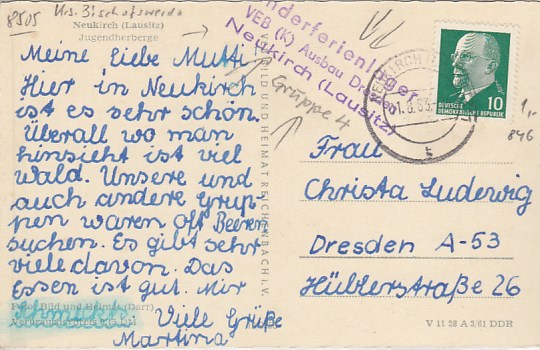 8505 Krs. Bischofswerda
Neukirch (Lausitz)
Jugendherberge
Meine liebe Mutti!
Hier in Neukirch
ist es sehr schön.
Überall wo man
hinsieht ist viel
Wald. Unsere und
auch andere Grup-
pen waren oft Beeren
suchen. Es gibt sehr
viele davon. Das
Essen ist gut. Mir
schmeckts.
Viele Grüße
Martina
Foto: Bild und Heimat (Darr)
BILD UND HEIMAT REICHENBACH I. V.
Kinderferienlager
VEB (K) Ausbau Dresden
Neukirch (Lausitz)
Gruppe 4
NEUKIRCH
DEUTSCHE
DEMOKRATISCHE REPUBLIK
10
1,-
846
Frau
Christa Ludewig
Dresden A-53
Hüblerstraße 26
V 11 28 A 3/61 DDR